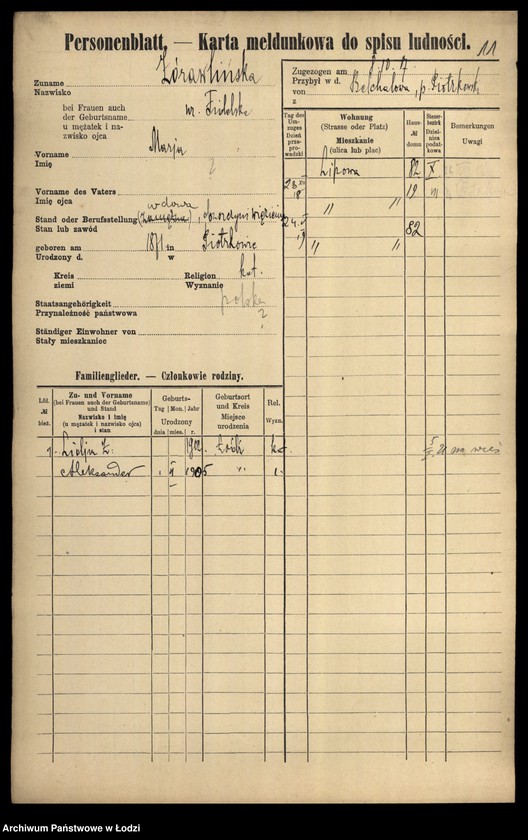 Personenblatt. — Karta meldunkowa do spisu ludności. 11
Zuname Żórawlińska
Nazwisko
bei Frauen auch
der Geburtsname
u mężatek i na-
zwisko ojca
Vorname Marja
Imię ?
Vorname des Vaters
Imię ojca
wdowa
Stand oder Berufsstellung (zamężna),
Stan lub zawód
geboren am 1871 in Piotrkowie
Urodzony d. w
Kreis Religion kat.
ziemi Wyznanie
Staatsangehörigkeit polska
Przynależność państwowa ?
Ständiger Einwohner von
Stały mieszkaniec
Zugezogen am 10. 17
Przybył w d.
von Bełchatowa, p. Piotrkowsk.
z
Tag des Um-zuges Dzień prze-prowadzki
Wohnung (Strasse oder Platz) Mieszkanie (ulica lub plac)
Haus- № domu
Steuer-bezirk Dziel-nica podat-kowa
Bemerkungen Uwagi
Lipowa 82 X
18 " " 19
24 19 " " 82
Familienglieder. — Członkowie rodziny.
Lfd. № bież.
Zu- und Vorname (bei Frauen auch der Geburtsname) und Stand Nazwisko i imię (u mężatek i nazwisko ojca) i stan
Geburts- Tag Mon. Jahr Urodzony dnia mies. r.
Geburtsort und Kreis Miejsce urodzenia
Rel. Wyzn.
Ż. 1902 Łódź kat.
Aleksander 1905 " "
na wieś
Archiwum Państwowe w Łodzi